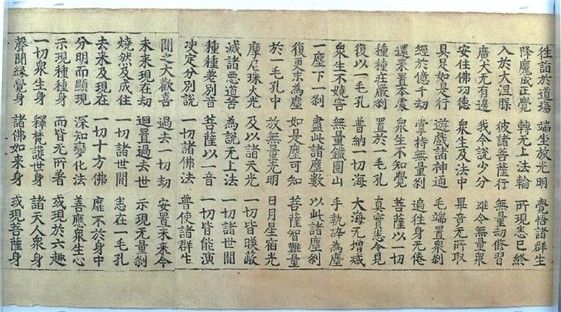 往詣於道場 端坐放光明 覺悟諸群生
降魔成正覺 轉无上法輪 所現悉已終
入於大涅槃 彼諸菩薩行 無量劫修習
廣大无有邊 我今說少分 雖令無量衆
安住佛功德 衆生及法中 畢竟无所取
具足如是行 遊戲諸神通 毛端置衆剎
經於億千劫 掌持無量剎 遍往身无倦
還來置本處 衆生不知覺 菩薩以一切
種種莊嚴剎 置於一毛孔 真實悉令見
復以一毛孔 普納一切海 大海无增減
衆生不嬈害 無量鐵圍山 手執碎為塵
一塵下一剎 盡此諸塵數 以此諸塵剎
復更末為塵 如是塵可知 菩薩智難量
於一毛孔中 放無量光明 日月星宿光
摩尼珠火光 及以諸天光 一切皆暎蔽
滅諸惡道苦 為說无上法 一切諸世間
種種差別音 菩薩以一音 一切皆能演
決定分別說 一切諸佛法 普使諸群生
聞之大歡喜 過去一切劫 安置未來今
未來現在劫 迴置過去世 示現無量剎
燒然及成住 一切諸世間 悉在一毛孔
去來及現在 一切十方佛 靡不於身中
分明而顯現 深知變化法 善應衆生心
示現種種身 而皆无所著 或現於六趣
一切衆生身 釋梵護世身 諸天人衆身
聲聞緣覺身 諸佛如來身 或現菩薩身